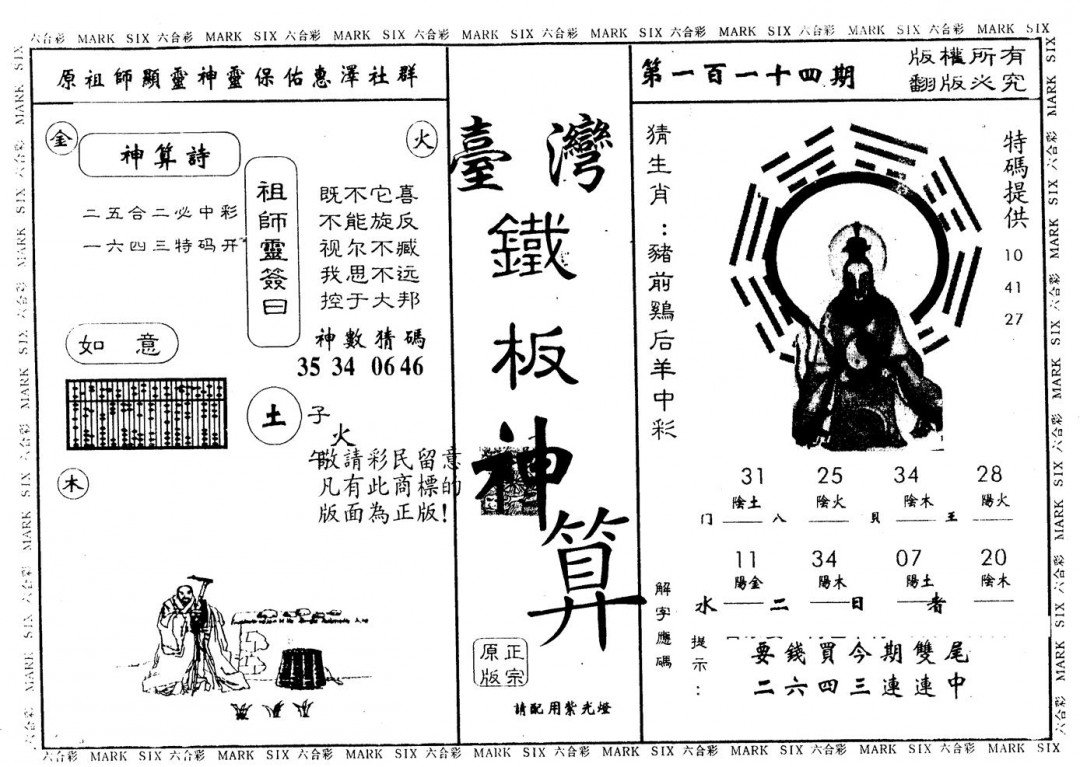 六合彩 MARK SIX 六合彩 MARK SIX 六合彩 MARK SIX 六合彩 MARK SIX 六合彩 MARK SIX 六合彩 MARK SIX 六合彩 MARK SIX 六合彩 MARK SIX
原祖師顯靈神靈保佑惠澤社群
金
火
神算詩
二五合二必中彩
一六四三特码开
祖師靈簽曰
既不它喜
不能旋反
视尔不臧
我思不远
控于大邦
神數猜碼
35 34 06 46
如意
土
子
火
午
敬請彩民留意
凡有此商標的
版面為正版!
木
臺灣
鐵
板
神
算
正宗
原版
請配用紫光燈
第一百一十四期
版權所有
翻版必究
猜生肖:豬前鷄后羊中彩
特碼提供
10
41
27
31 25 34 28
陰土 陰火 陰木 陽火
门 八 貝 王
11 34 07 20
陽金 陽木 陽土 陰木
水 二 日 者
解字應碼
提示:
要錢買今期雙尾
二六四三連連中
六合彩 MARK SIX 六合彩 MARK SIX 六合彩 MARK SIX 六合彩 MARK SIX 六合彩 MARK SIX 六合彩 MARK SIX 六合彩 MARK SIX 六合彩 MARK SIX